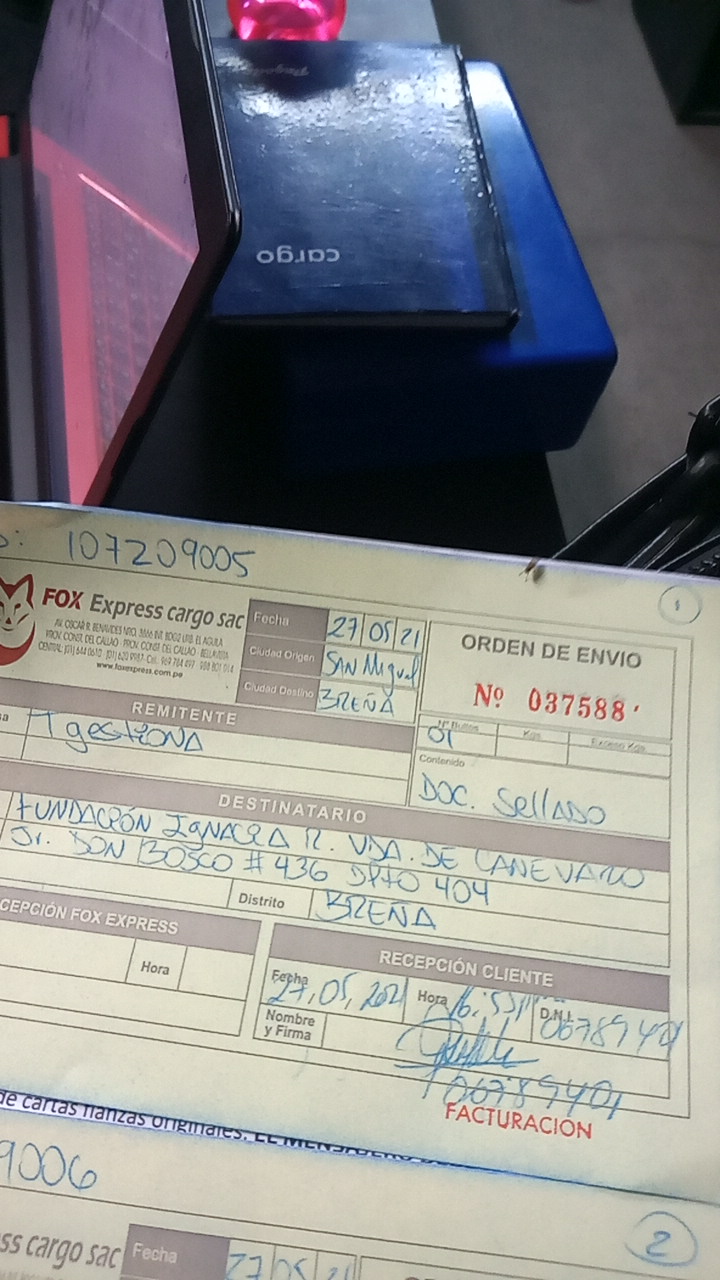 cargo
107209005
1
FOX Express cargo sac
AV. OSCAR R. BENAVIDES NRO. 3866 INT. 8002 URB. EL AGUILA
PROV. CONST. DEL CALLAO - PROV. CONST. DEL CALLAO - BELLAVISTA
www.foxexpress.com.pe
Fecha 27 05 21
Ciudad Origen SAN Miguel
Ciudad Destino BREÑA
ORDEN DE ENVIO
Nº 037588
REMITENTE
Tgestiona
Nº Bultos Kgs. Exceso Kgs.
01
Contenido
DOC. Sellado
DESTINATARIO
FUNDACIÓN IGNACIA R. VDA. DE CANEVARO
Jr. DON BOSCO # 436 DPTO 404
Distrito BREÑA
CEPCIÓN FOX EXPRESS
Hora
RECEPCIÓN CLIENTE
Fecha 27,05,2021 Hora D.N.I. 06789401
Nombre
y Firma
06789401
FACTURACION
de cartas fianzas originales.
9006
2
ss cargo sac
Fecha 27 05 21